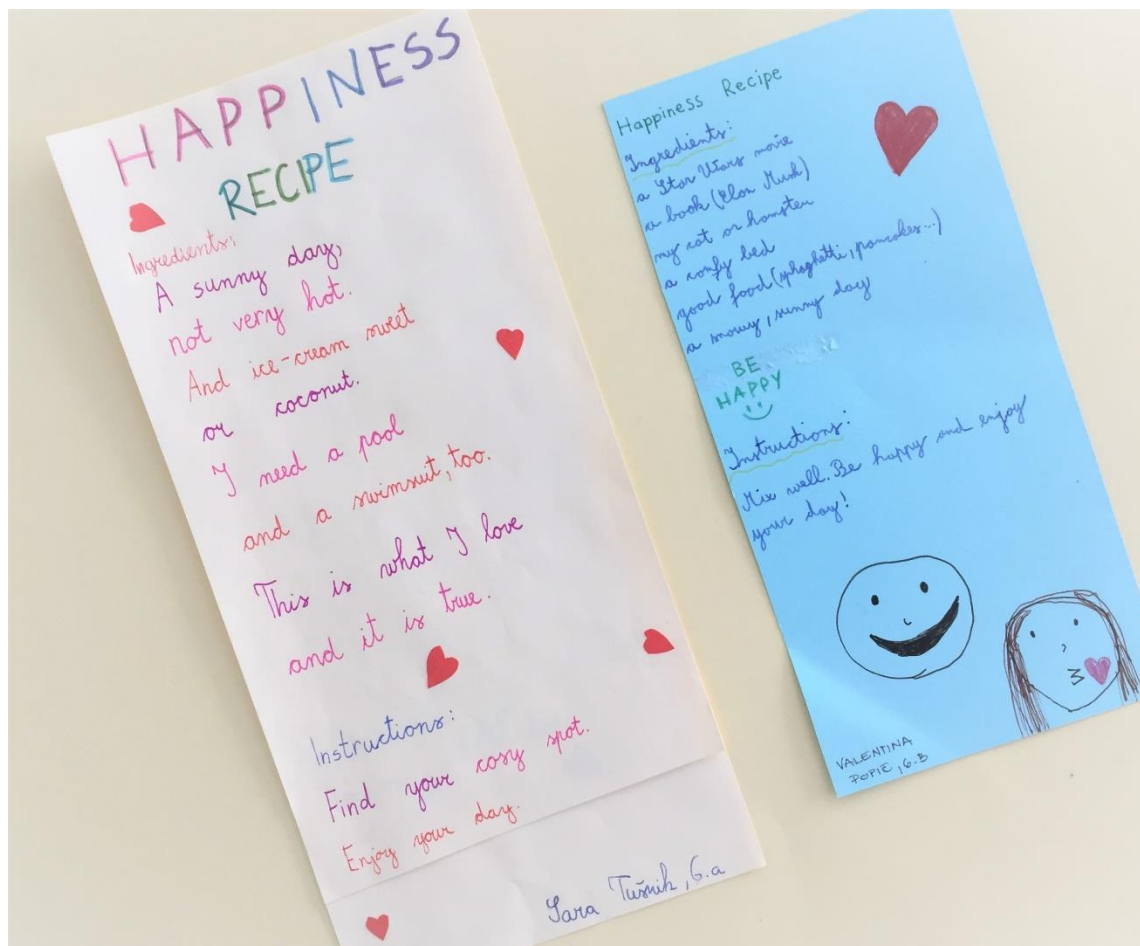 HAPPINESS
RECIPE
Ingredients:
A sunny day,
not very hot.
And ice-cream sweet
or coconut.
I need a pool
and a swimsuit, too.
This is what I love
and it is true.
Instructions:
Find your cosy spot.
Enjoy your day.
Sara Tušnik, 6.a
Happiness Recipe
Ingredients:
a Star Wars movie
a book (Elon Musk)
my cat or hampter
a comfy bed
good food (sphaghetti, pancakes...)
a snowy, sunny day
BE
HAPPY
Instructions:
Mix well. Be happy and enjoy
your day!
VALENTINA
POPIČ, 6.B